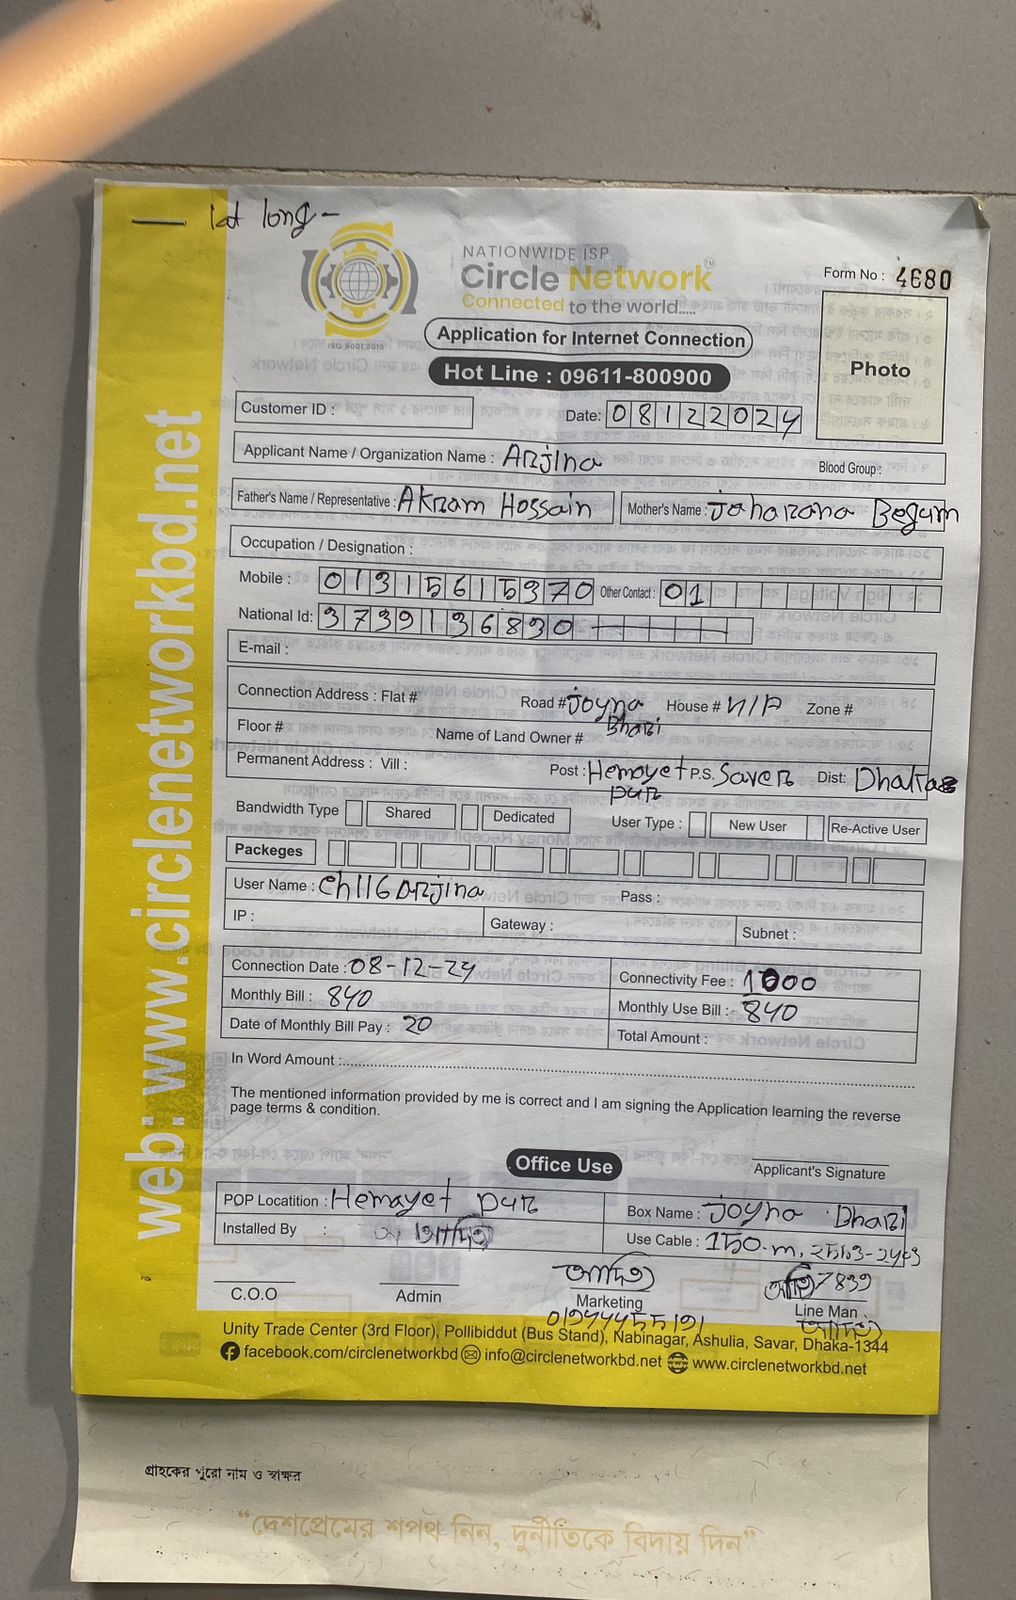 lat long -
NATIONWIDE ISP
Circle Network
Connected to the world.....
ISO 9001:2015
Form No : 4680
Application for Internet Connection
Hot Line : 09611-800900
Photo
web: www.circlenetworkbd.net
Customer ID :
Date: 08122024
Applicant Name / Organization Name : Arjina
Blood Group :
Father's Name / Representative : Akram Hossain
Mother's Name : Joharana Begum
Occupation / Designation :
Mobile : 01315615970 Other Contact : 01
National Id: 3739136830
E-mail :
Connection Address : Flat # Road # Joyna Bhari House # N/A Zone #
Floor # Name of Land Owner #
Permanent Address : Vill : Post : Hemayet pur P.S. Saver Dist: Dhaka
Bandwidth Type Shared Dedicated User Type : New User Re-Active User
Packeges
User Name : Ch116Arjina Pass :
IP : Gateway : Subnet :
Connection Date : 08-12-24 Connectivity Fee : 1000
Monthly Bill : 840 Monthly Use Bill :- 840
Date of Monthly Bill Pay : 20 Total Amount :
In Word Amount :
The mentioned information provided by me is correct and I am signing the Application learning the reverse
page terms & condition.
Office Use
Applicant's Signature
POP Locatition : Hemayet pur Box Name : Joyna Bhari
Installed By : Use Cable : 150.m,
C.O.O Admin Marketing Line Man
Unity Trade Center (3rd Floor), Pollibiddut (Bus Stand), Nabinagar, Ashulia, Savar, Dhaka-1344
facebook.com/circlenetworkbd info@circlenetworkbd.net www.circlenetworkbd.net
গ্রাহকের পুরো নাম ও স্বাক্ষর
“দেশপ্রেমের শপথ নিন, দুর্নীতিকে বিদায় দিন”